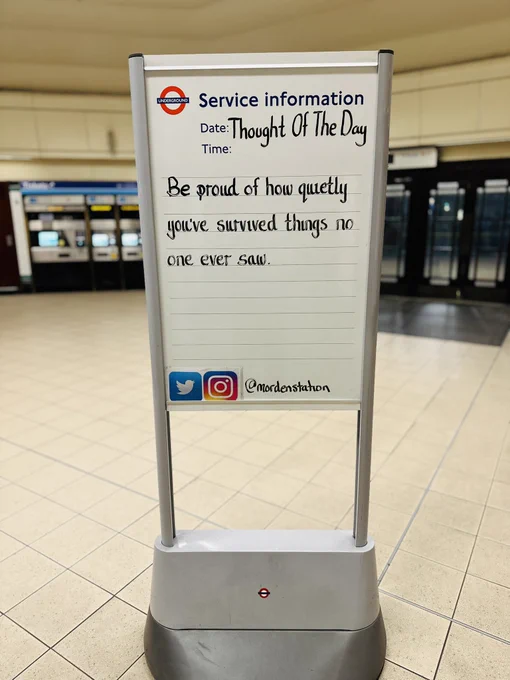 UNDERGROUND
Service information
Date: Thought Of The Day
Time:
Be proud of how quietly
you've survived things no
one ever saw.
@mordenstation